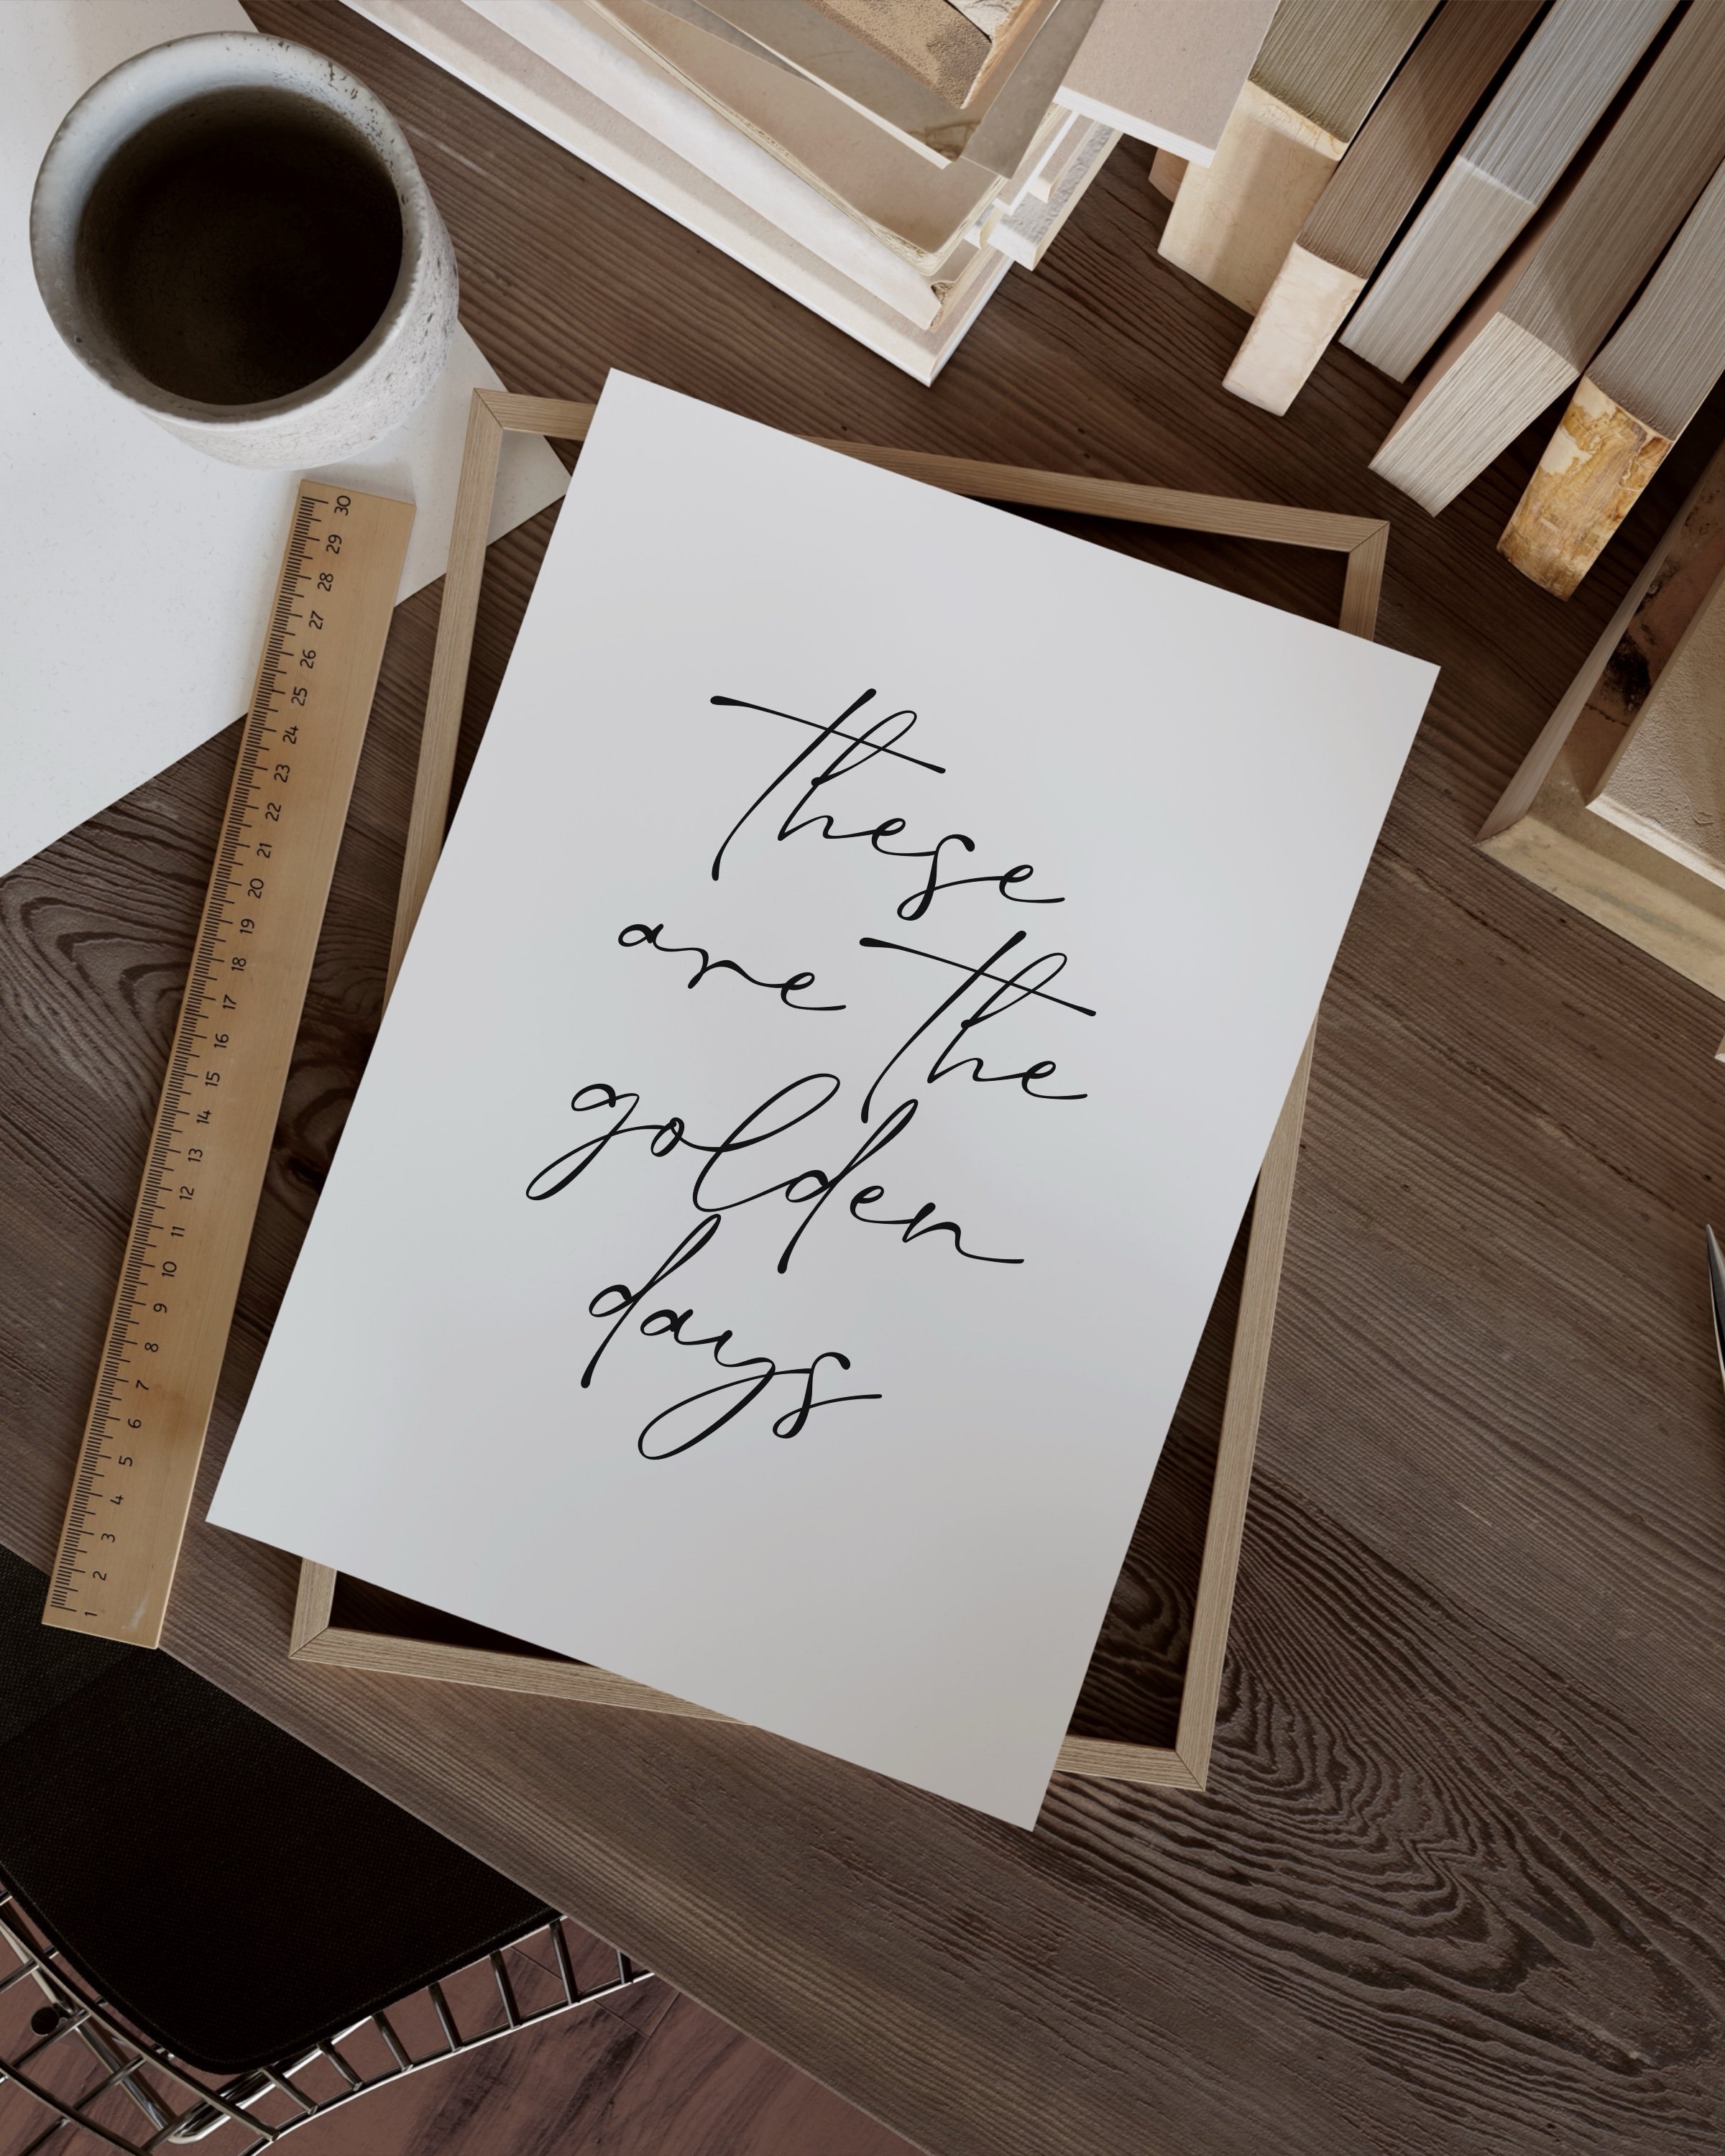 these
are the
golden
days
30
29
28
27
26
25
24
23
22
21
20
19
18
17
16
15
14
13
12
11
10
9
8
7
6
5
4
3
2
1